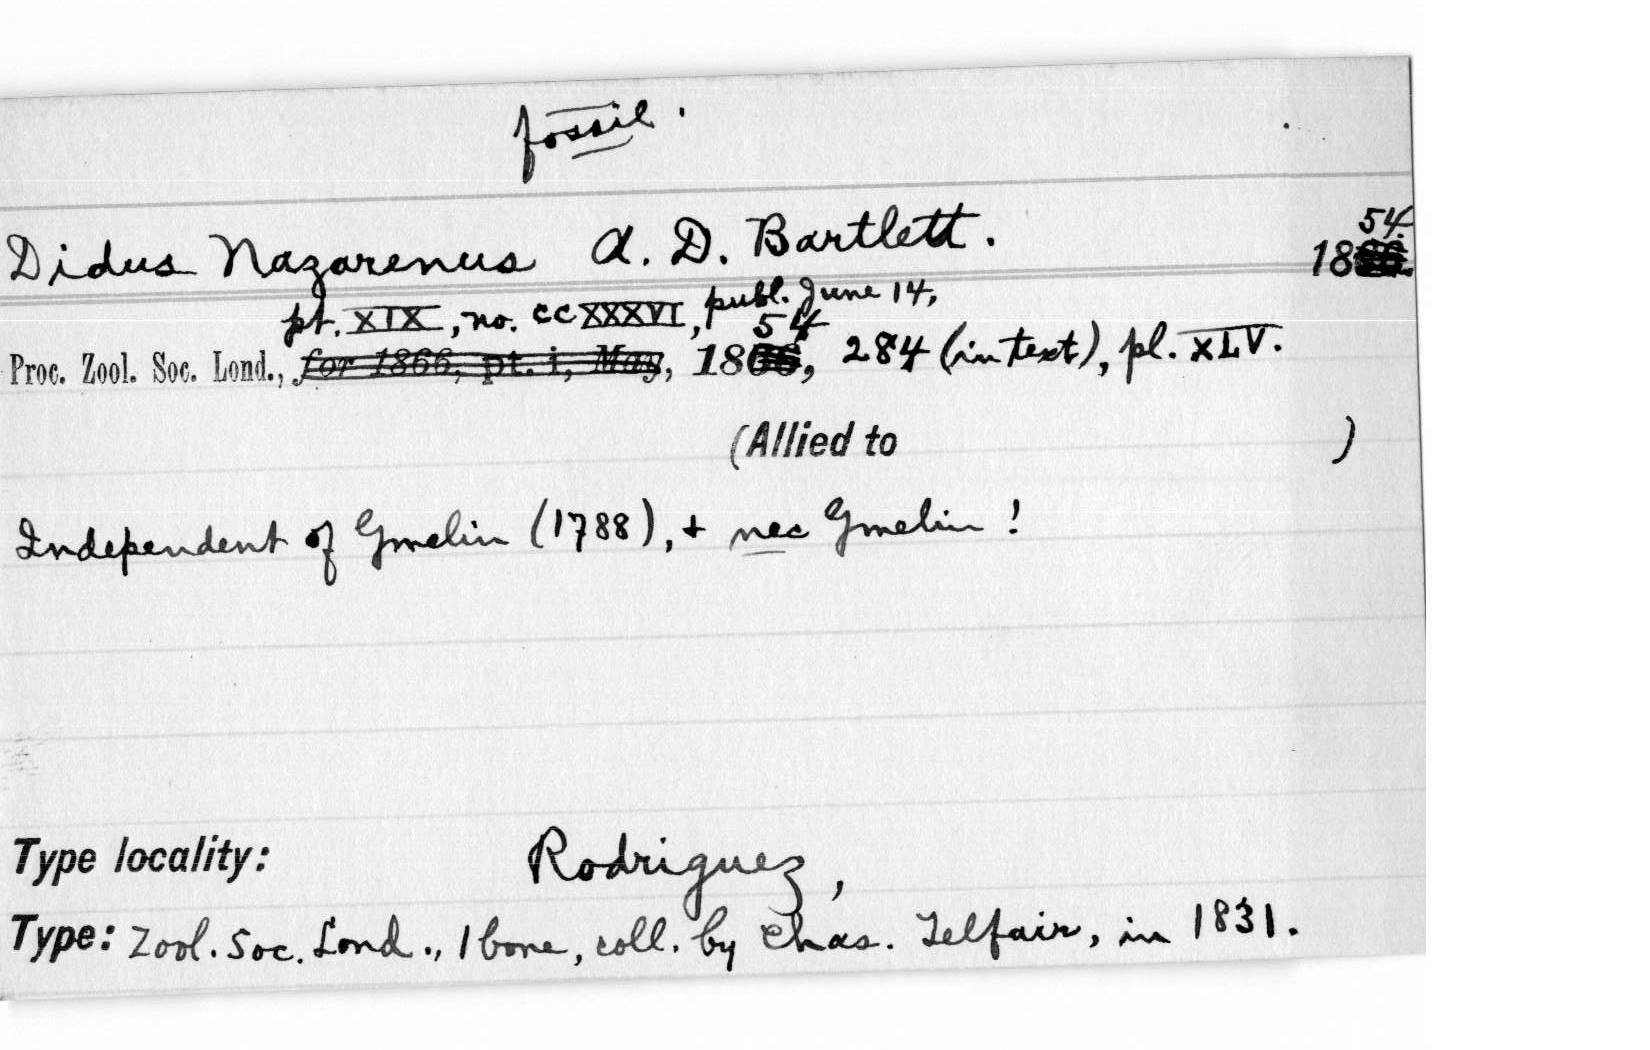 fossil.
Didus Nazarenus A. D. Bartlett. 1854.
pt. XIX, no. CCXXXVI, publ. June 14,
Proc. Zool. Soc. Lond., for 1866, pt. i, May, 1854, 284 (in text), pl. XLV.
(Allied to )
Independent of Gmelin (1788), + nec Gmelin!
Type locality: Rodriguez,
Type: Zool. Soc. Lond., 1 bone, coll. by Chas. Telfair, in 1831.